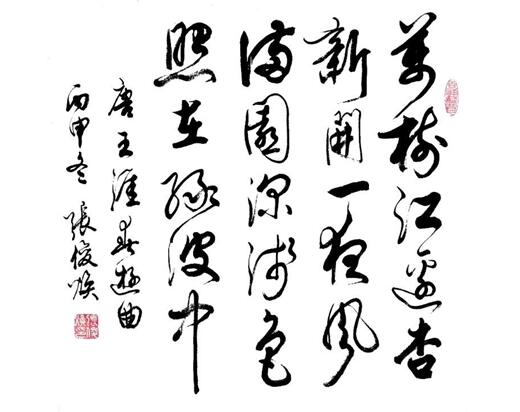 萬樹江邊杏
新開一夜風
滿園深淺色
照在綠波中
唐王涯春遊曲
丙申冬 張俊煥